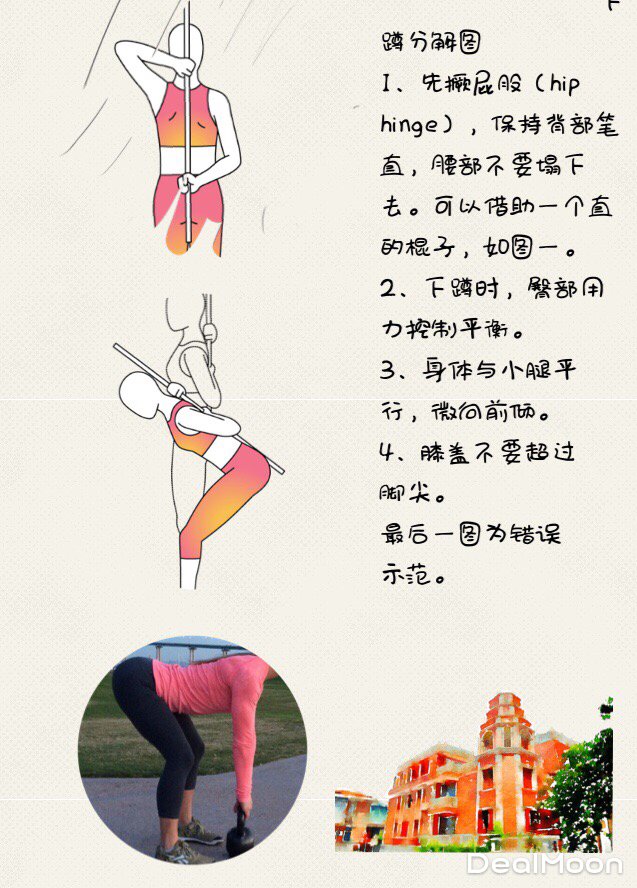 蹲分解图
1、先撅屁股（hip
hinge），保持背部笔
直，腰部不要塌下
去。可以借助一个直
的棍子，如图一。
2、下蹲时，臀部用
力控制平衡。
3、身体与小腿平
行，微向前倾。
4、膝盖不要超过
脚尖。
最后一图为错误
示范。
DealMoon